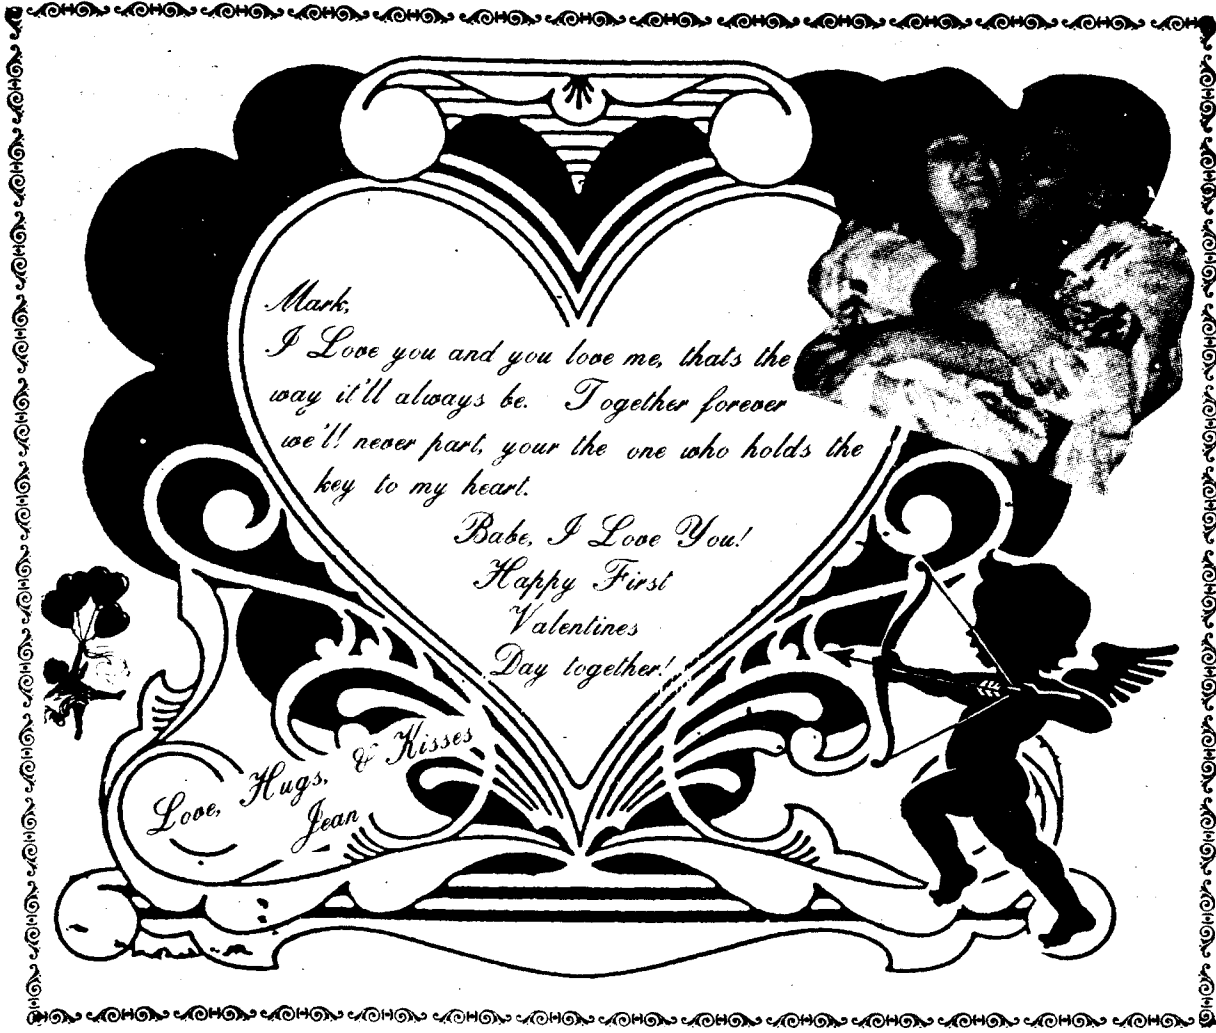 Mark,
I Love you and you love me, thats the
way it'll always be. Together forever
we'll never part, your the one who holds the
key to my heart.
Babe, I Love You!
Happy First
Valentines
Day together!
Love, Hugs, & Kisses
Jean